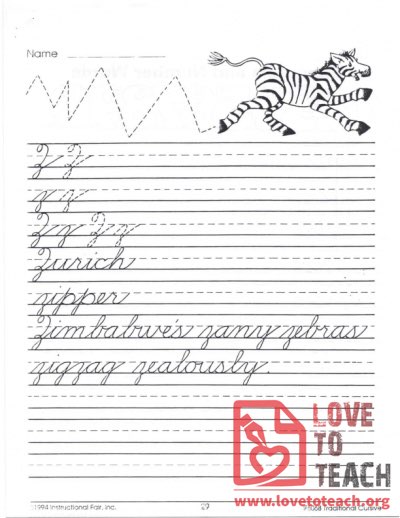 Name
Z Z
z z
Zz Zz
Zurich
zipper
Zimbabwe's zany zebras
zigzag zealously.
LOVE
TO
TEACH
www.lovetoteach.org
©1994 Instructional Fair, Inc.
29
Traditional Cursive